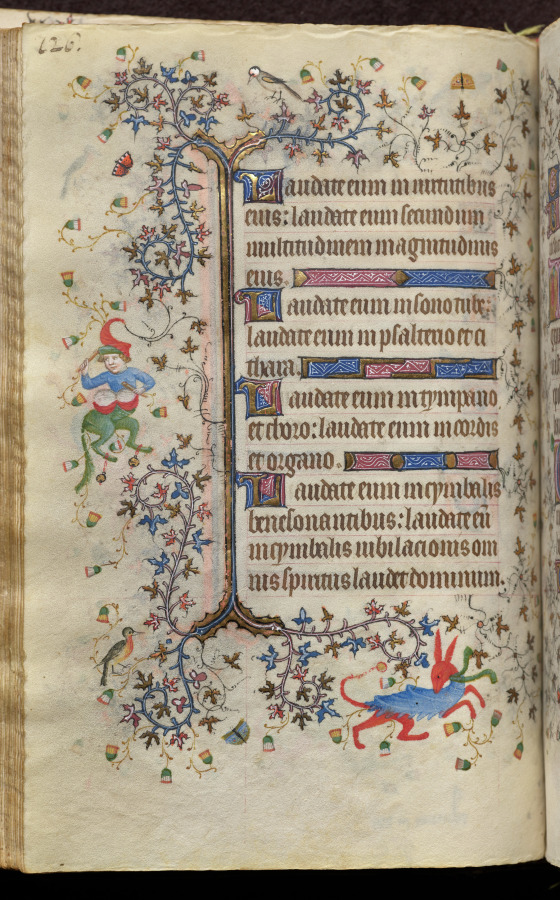 126.
Laudate eum in uirtutibus
eius: laudate eum secundum
multitudinem magnitudinis
eius.
Laudate eum in sono tube:
laudate eum in psalterio et ci
thara.
Laudate eum in tympano
et choro: laudate eum in cordis
et organo.
Laudate eum in cymbalis
benesonantibus: laudate eū
in cymbalis iubilacionis om
nis spiritus laudet dominum.